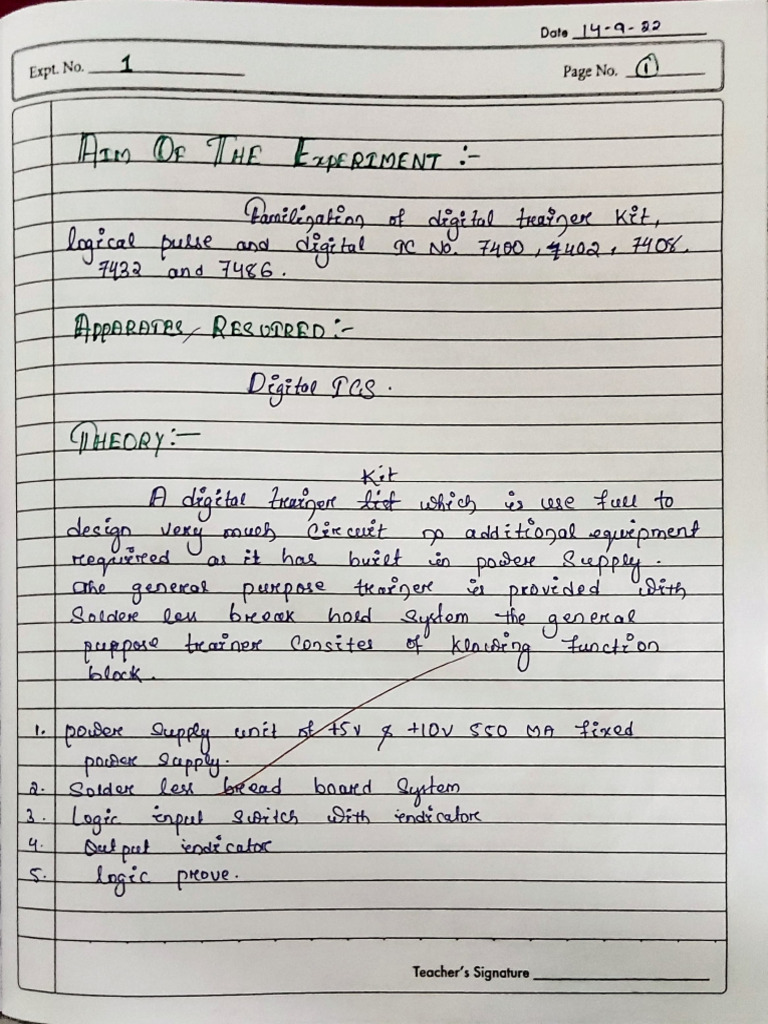 Date 14-9-22
Expt. No. 1
Page No. 1
AIM OF THE EXPERIMENT :-
Familization of digital trainer Kit,
logical pulse and digital IC No. 7400, 7402, 7408.
7432 and 7486.
APPARATAS REQUIRED :-
Digital ICS.
THEORY :-
Kit
A digital trainer list which is use full to
design very much circuit no additional equipment
required as it has built in power supply.
The general purpose trainer is provided with
Solder less break hold system the general
puppose trainer consites of function
block.
1. power supply unit of +5v & +10v 550 MA fixed
power supply.
2. Solder less bread board System
3. Logic input switch with indicator
4. Output indicator
5. logic prove.
Teacher's Signature